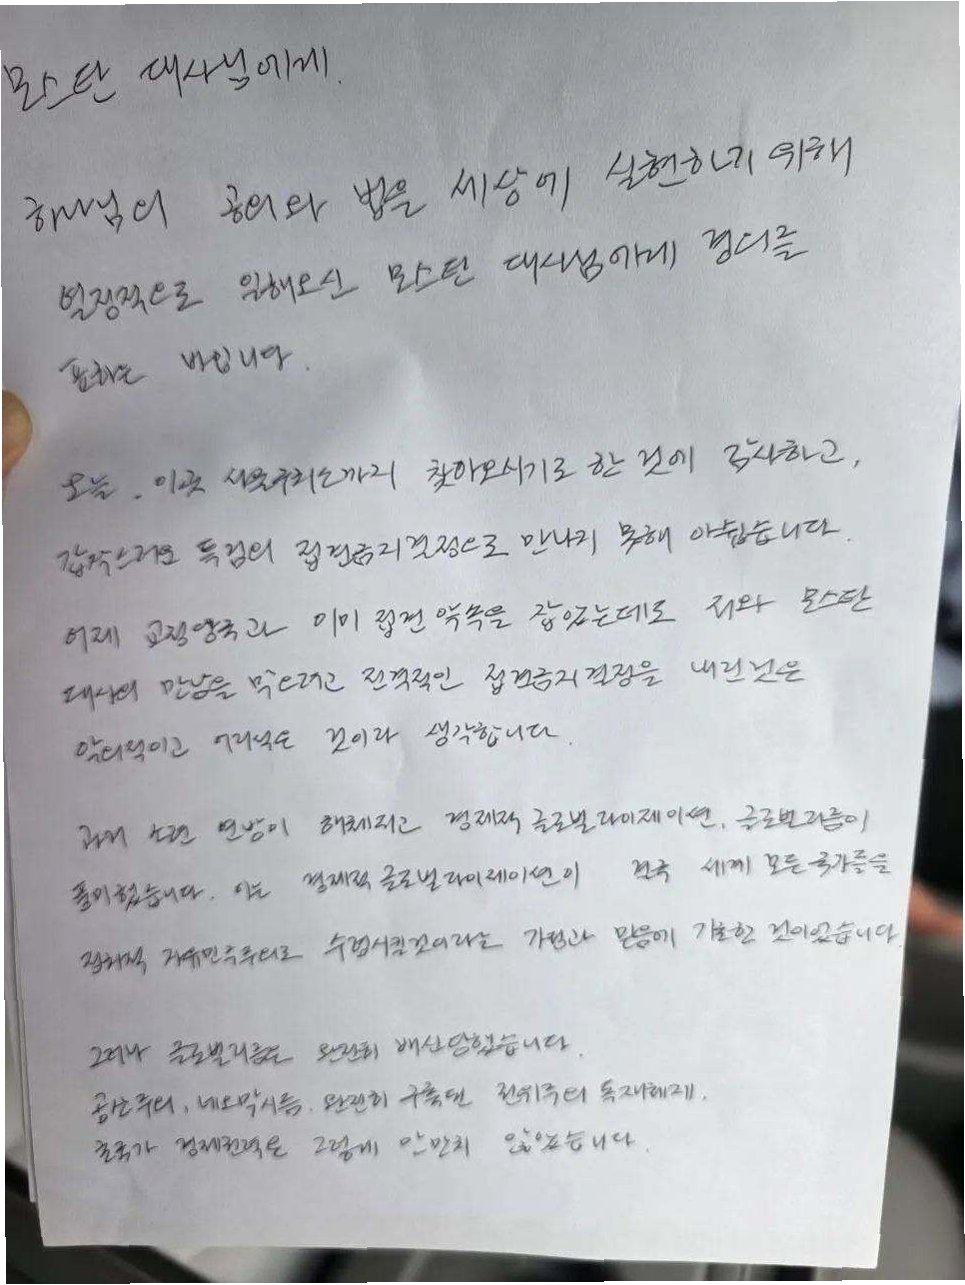 모스탄 대사님에게.
하나님의 공의와 법을 세상에 실현하기 위해
열정적으로 일해오신 모스탄 대사님에게 경의를
표하는 바입니다.
오늘. 이곳 서울구치소까지 찾아오시기로 한 것에 감사하고,
갑작스러운 특검의 접견금지결정으로 만나지 못해 아쉽습니다.
어제 교정당국과 이미 접견 약속을 잡았는데도 저와 모스탄
대사의 만남을 막으려고 전격적인 접견금지결정을 내린 것은
악의적이고 어리석은 것이라 생각합니다.
과거 소련 연방이 해체되고 경제적 글로벌라이제이션, 글로벌리즘이
풍미했습니다. 이는 경제적 글로벌라이제이션이 결국 세계 모든 국가들을
정치적 자유민주주의로 수렴시킬것이라는 가정과 믿음에 기초한 것이었습니다.
그러나 글로벌리즘은 완전히 배신당했습니다.
공산주의, 네오막시즘, 완전히 구축된 전위주의 독재체제,
초국가 경제권력은 그렇게 만만치 않았습니다.